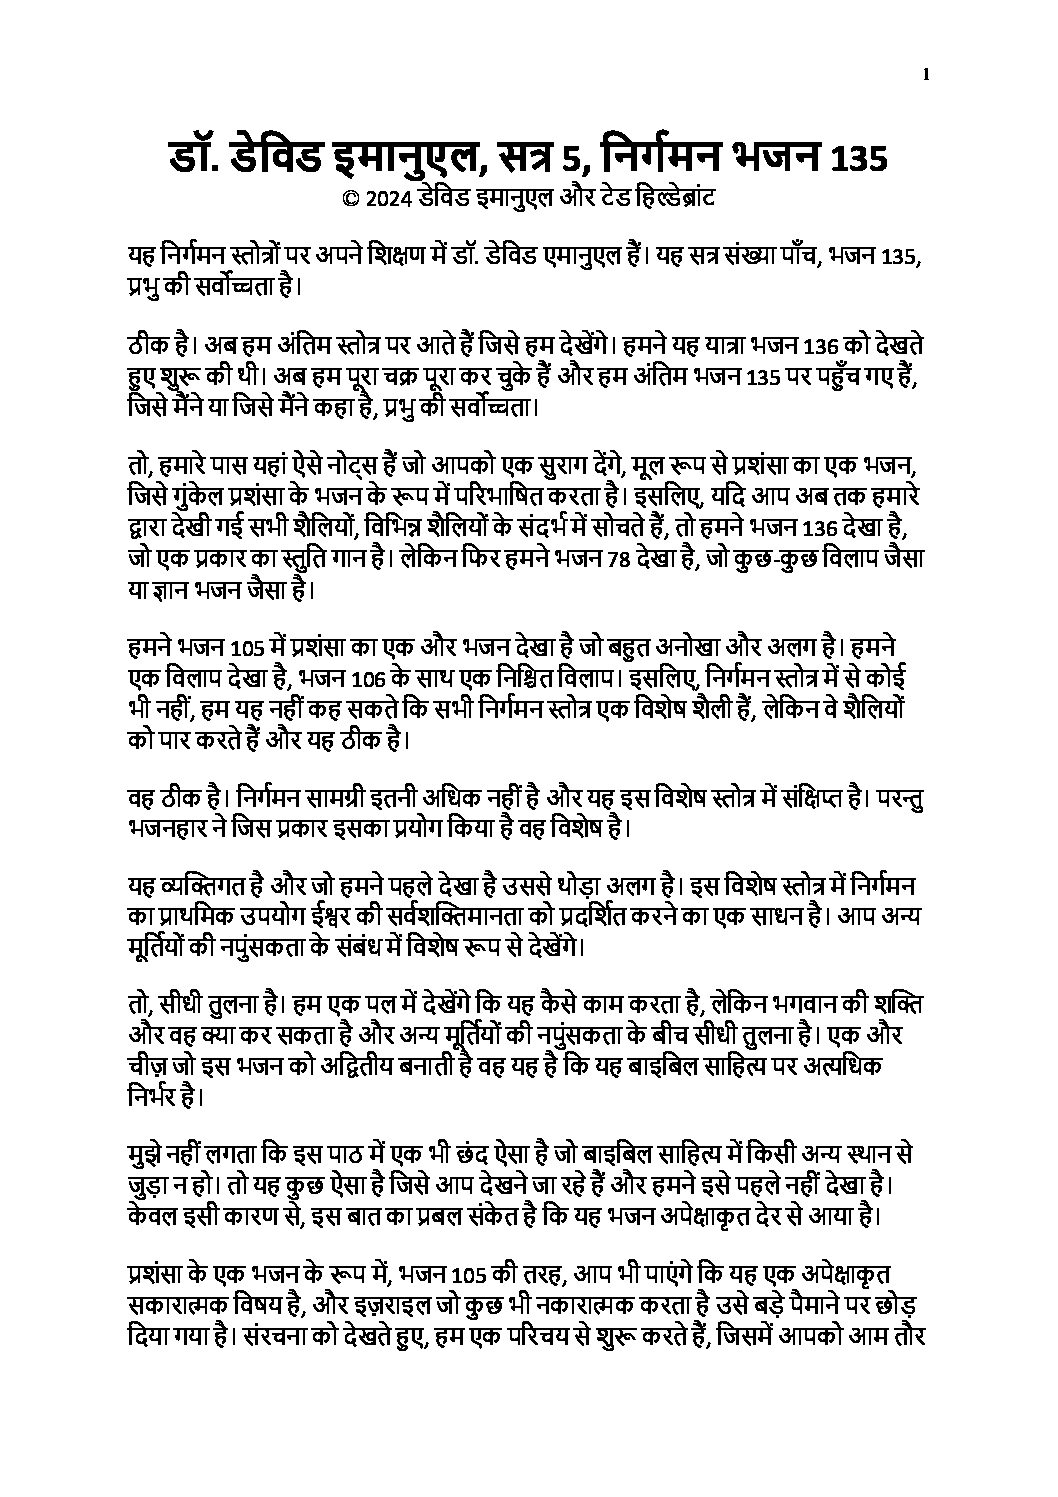 1
डॉ. डेविड इमानुएल, सत्र 5, निर्गमन भजन 135
© 2024 डेविड इमानुएल और टेड हिल्डेब्रांट
यह निर्गमन स्तोत्रों पर अपने शिक्षण में डॉ. डेविड एमानुएल हैं। यह सत्र संख्या पाँच, भजन 135,
प्रभु की सर्वोच्चता है।
ठीक है। अब हम अंतिम स्तोत्र पर आते हैं जिसे हम देखेंगे। हमने यह यात्रा भजन 136 को देखते
हुए शुरू की थी। अब हम पूरा चक्र पूरा कर चुके हैं और हम अंतिम भजन 135 पर पहुँच गए हैं,
जिसे मैंने या जिसे मैंने कहा है, प्रभु की सर्वोच्चता।
तो, हमारे पास यहां ऐसे नोट्स हैं जो आपको एक सुराग देंगे, मूल रूप से प्रशंसा का एक भजन,
जिसे गुंकेल प्रशंसा के भजन के रूप में परिभाषित करता है। इसलिए, यदि आप अब तक हमारे
द्वारा देखी गई सभी शैलियों, विभिन्न शैलियों के संदर्भ में सोचते हैं, तो हमने भजन 136 देखा है,
जो एक प्रकार का स्तुति गान है। लेकिन फिर हमने भजन 78 देखा है, जो कुछ-कुछ विलाप जैसा
या ज्ञान भजन जैसा है।
हमने भजन 105 में प्रशंसा का एक और भजन देखा है जो बहुत अनोखा और अलग है। हमने
एक विलाप देखा है, भजन 106 के साथ एक निश्चित विलाप। इसलिए, निर्गमन स्तोत्र में से कोई
भी नहीं, हम यह नहीं कह सकते कि सभी निर्गमन स्तोत्र एक विशेष शैली हैं, लेकिन वे शैलियों
को पार करते हैं और यह ठीक है।
वह ठीक है। निर्गमन सामग्री इतनी अधिक नहीं है और यह इस विशेष स्तोत्र में संक्षिप्त है। परन्तु
भजनहार ने जिस प्रकार इसका प्रयोग किया है वह विशेष है।
यह व्यक्तिगत है और जो हमने पहले देखा है उससे थोड़ा अलग है। इस विशेष स्तोत्र में निर्गमन
का प्राथमिक उपयोग ईश्वर की सर्वशक्तिमानता को प्रदर्शित करने का एक साधन है। आप अन्य
मूर्तियों की नपुंसकता के संबंध में विशेष रूप से देखेंगे।
तो, सीधी तुलना है। हम एक पल में देखेंगे कि यह कैसे काम करता है, लेकिन भगवान की शक्ति
और वह क्या कर सकता है और अन्य मूर्तियों की नपुंसकता के बीच सीधी तुलना है। एक और
चीज़ जो इस भजन को अद्वितीय बनाती है वह यह है कि यह बाइबिल साहित्य पर अत्यधिक
निर्भर है।
मुझे नहीं लगता कि इस पाठ में एक भी छंद ऐसा है जो बाइबिल साहित्य में किसी अन्य स्थान से
जुड़ा न हो। तो यह कुछ ऐसा है जिसे आप देखने जा रहे हैं और हमने इसे पहले नहीं देखा है।
केवल इसी कारण से, इस बात का प्रबल संकेत है कि यह भजन अपेक्षाकृत देर से आया है।
प्रशंसा के एक भजन के रूप में, भजन 105 की तरह, आप भी पाएंगे कि यह एक अपेक्षाकृत
सकारात्मक विषय है, और इज़राइल जो कुछ भी नकारात्मक करता है उसे बड़े पैमाने पर छोड़
दिया गया है। संरचना को देखते हुए, हम एक परिचय से शुरू करते हैं, जिसमें आपको आम तौर